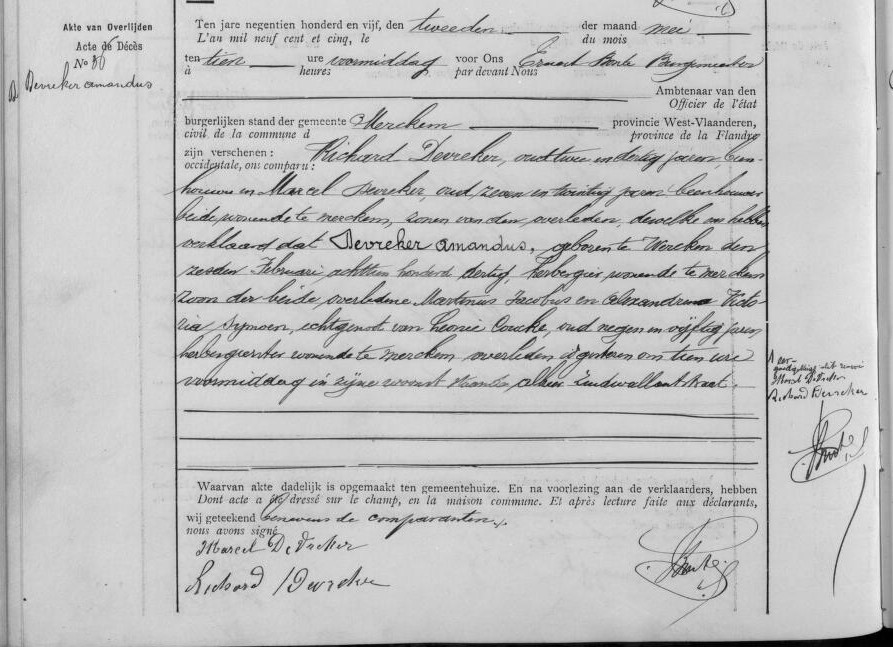 Akte van Overlijden
Acte de Décès
No 36
Devreker amandus
Ten jare negentien honderd en vijf, den tweeden der maand mei
L'an mil neuf cent et cinq, le du mois
ten tien ure voormiddag voor Ons Ernest Burgmeester
à heures par devant Nous
Ambtenaar van den
Officier de l'état
burgerlijken stand der gemeente Merckem provincie West-Vlaanderen,
civil de la commune d province de la Flandre
zijn verschenen : Richard Devreker, oud twee en dertig jaren, been-
occidentale, ons comparu :
houwer en Marcel Devreker, oud zeven en twintig jaren beenhouwer
beide wonende te merckem, zonen van den overleden, dewelke ons hebben
verklaard dat Devreker amandus, geboren te Wercken den
zesden Februari achttien honderd dertig, herbergier wonende te merckem
zoon der beide overledene Martinus Jacobus en Alexandrina Victo-
ria Symoen, echtgenoot van Leonie Coucke, oud negen en vijftig jaren
herbergierster wonende te merckem overleden is gisteren om tien ure
voormiddag in zijne woonst staande, alhier
Richard Devreker
Waarvan akte dadelijk is opgemaakt ten gemeentehuize. En na voorlezing aan de verklaarders, hebben
Dont acte a été dressé sur le champ, en la maison commune. Et après lecture faite aux déclarants,
wij geteekend benevens de comparanten.
nous avons signé
Marcel Devreker
Richard Devreker